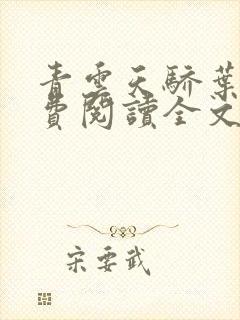 青雲天驕葉
費閱讀全文
宋要武